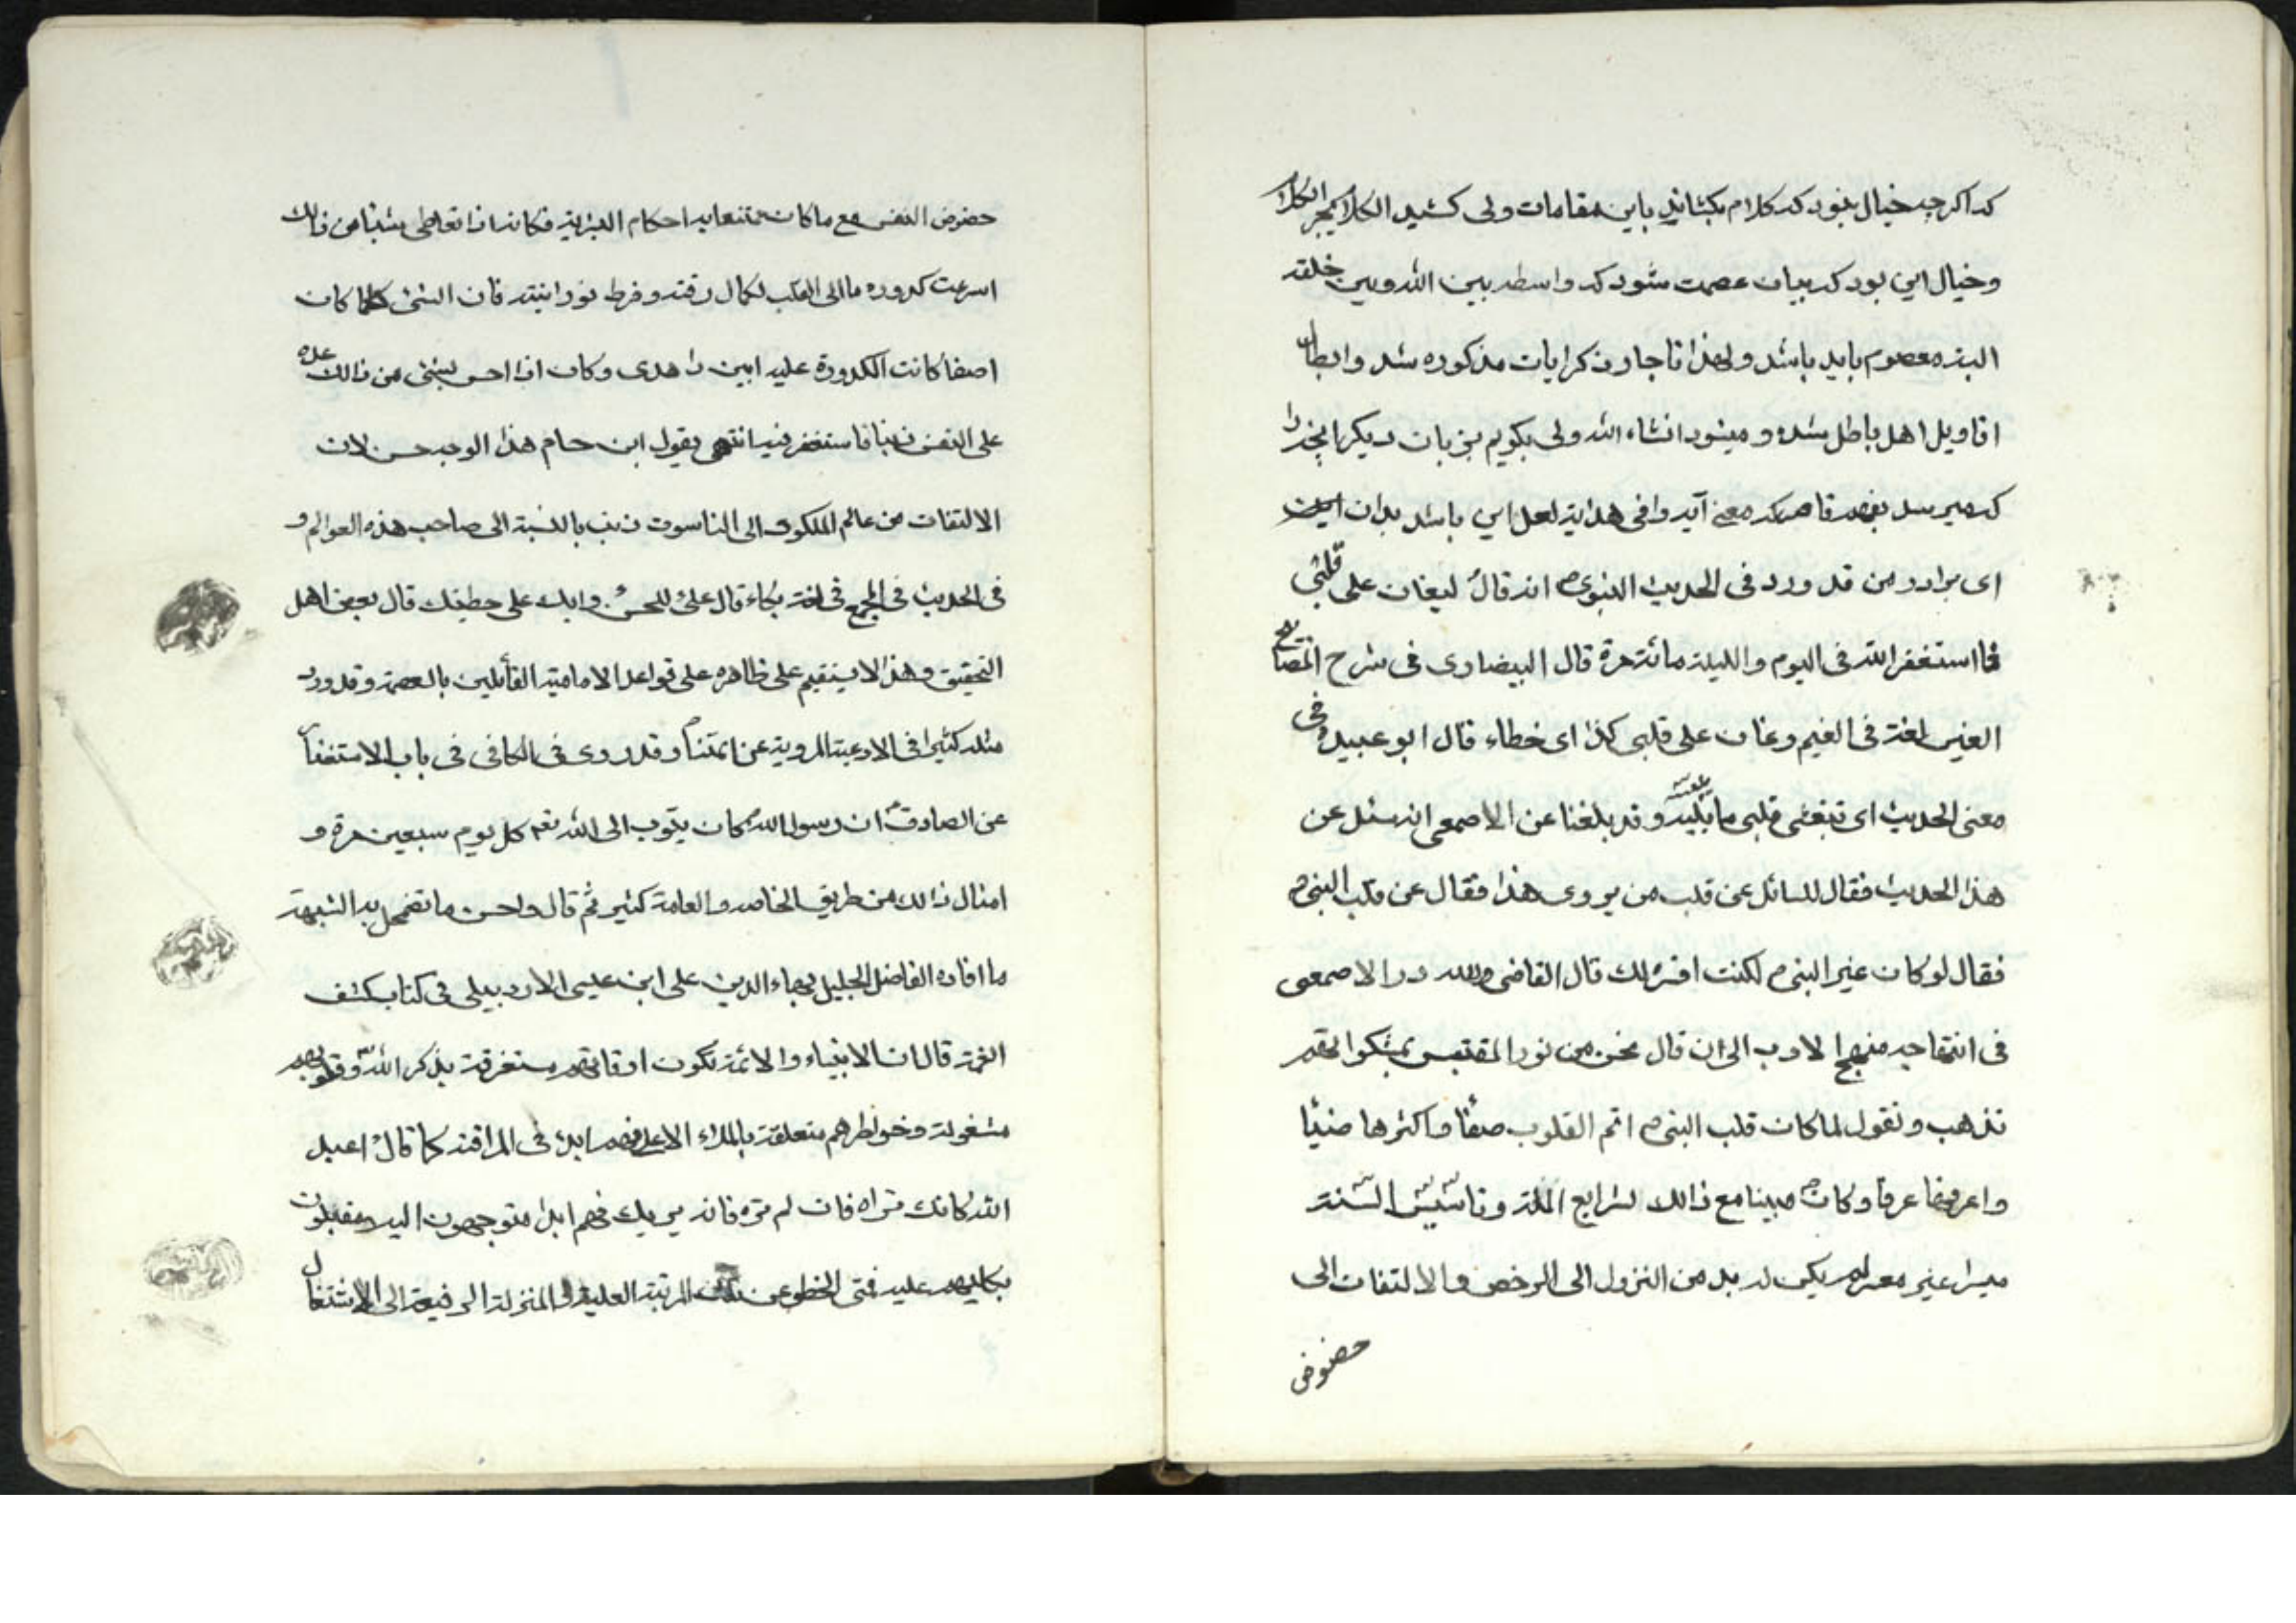 که اگرچه خیال نبود که کلام بکشاند باین مقامات ولی کشید الکلام یجر الکلام
و خیال این بود که بیان عصمت شود که واسطه بین الله و بین خلقه
البته معصوم باید باشد ولهذا تا جاو ذکر ایات مذکوره شد و ابطال
اقاویل اهل باطل شده و میشود انشاء الله ولی بگویم بزبان دیگر انچه را
که میرسد بفهم قاصر که معنی آید وافی هدایة لعل این باشد بدان
ای برادر من قد ورد فی الحدیث النبوی ص انه قال لیغان علی قلبی
فااستغفر الله فی الیوم واللیلة مائة مرة قال البیضاوی فی شرح المصابیح
الغین لغة فی الغیم وغان علی قلبی کذا ای غطاء قال ابو عبیده فی
معنی الحدیث ای تیغشی قلبی ما یلبسه وقد بلغنا عن الاصمعی انه سئل عن
هذا الحدیث فقال للسائل عن قلب من یروی هذا فقال عن قلب النبی ص
فقال لو کان غیر النبی ص لکنت افسره لک قال القاضی ولله در الاصمعی
فی انتهاجه منهج الادب الی ان قال نحن من نور المقتبس بمشکواتهم
نذهب ونقول لما کان قلب النبی ص اتم القلوب صفأ واکثرها ضیئا
واعرفها عرفا وکان ص مبینا مع ذالک لشرایع الملة وتاسیس السنة
میسرا غیر معسر لم یکن له بد من النزول الی الرخص والالتفات الی
حضوض
حضوض النفس مع ما کان ممتنعا به احکام البشریة فکانه اذا تعاطی شیئا من ذالک
اسرعت کدورة ما الی القلب لکمال رقته وفرط نورانیته فان الشئ کلما کان
اصفا کانت الکدورة علیه ابین واهدی وکان اذا احس بشئ من ذالک عده
علی النفس ذنبا فاستغفر فیه انتهی یقول ابن حسام هذا الوجه حسن لان
الالتفات من عالم الملکوت الی الناسوت ذنب بالنسبة الی صاحب هذه العوالم و
فی الحدیث فی المجمع فی لغة بکاء قال علی للحسن وابک علی خطیئتک قال بعض اهل
التحقیق وهذا لا یستقیم علی ظاهره علی قواعد الامامیة القائلین بالعصمة وقد ورد
مثله کثیرا فی الادعیة المرویة عن ائمتنا وقد روی فی الکافی فی باب الاستغفار
عن الصادق ان رسول الله کان یتوب الی الله تعم کل یوم سبعین مرة و
امثال ذالک من طریق الخاصه والعامة کثیر ثم قال واحسن ما تضمحل به الشبهة
ما افاده الفاضل الجلیل بهاء الدین علی ابن عیسی الاردبیلی فی کتاب کشف
الغمة قال ان الانبیاء والائمة تکون اوقاتهم مستغرقة بذکر الله وقلوبهم
مشغولة وخواطرهم متعلقة بالملاء الاعلی وهم ابدا فی المراقبة کما قال اعبد
الله کانک تراه فان لم تره فانه یریک فهم ابدا متوجهون الیه ومقبلون
بکلیتهم علیه فمتی انحطو عن تلک الرتبة العلیة و المنزلة الرفیعة الی الاشتغال